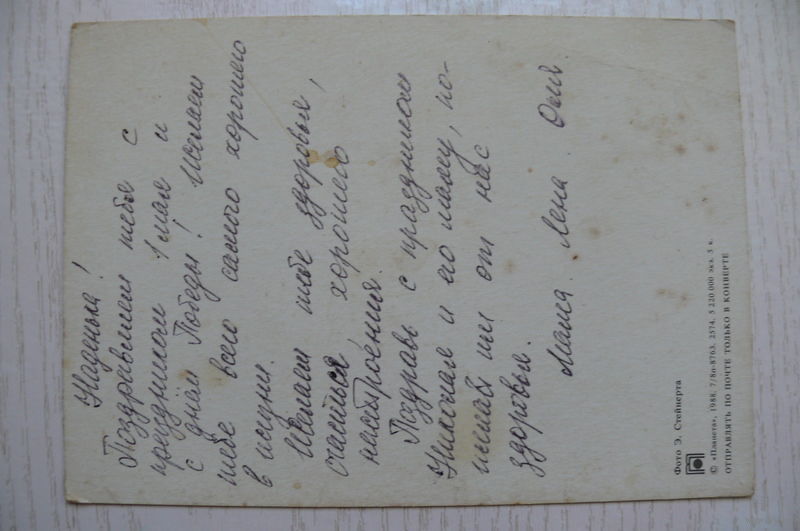 Наденька!
Поздравляем тебя с
праздником 1 мая и
с днём Победы! Желаем
тебе всего самого хорошего
в жизни.
Желаем тебе здоровья,
счастья, хорошего
настроения.
Поздравь с праздником
Николая и его маму, по-
желав им от нас
здоровья.
Мама. Лена. Оля.
Фото Э. Стейнерта
© «Планета», 1988, 7/8п-8763, 2574, 5 220 000 экз. 5 к.
ОТПРАВЛЯТЬ ПО ПОЧТЕ ТОЛЬКО В КОНВЕРТЕ